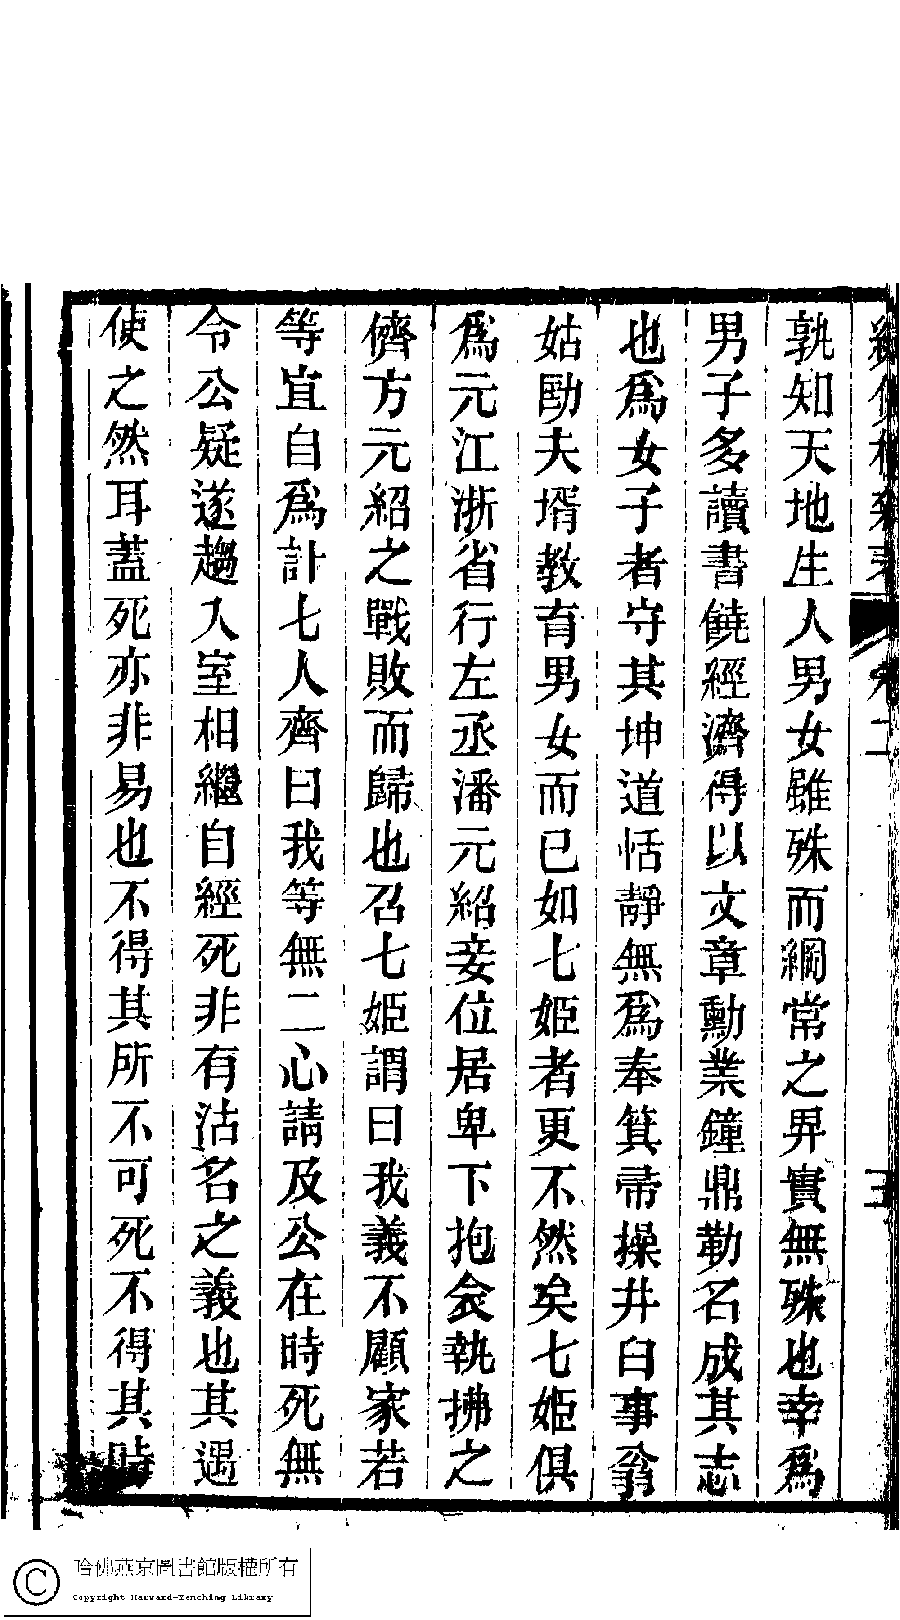 孰知天地生人男女雖殊而綱常之畀實無殊也幸爲
男子多讀書饒經濟得以文章勳業鐘鼎勒名成其志
也爲女子者守其坤道恬靜無爲奉箕帚操井臼事翁
姑勖夫壻教育男女而已如七姬者更不然矣七姬俱
爲元江浙省行左丞潘元紹妾位居卑下抱衾執拂之
儕方元紹之戰敗而歸也召七姬謂曰我義不顧家若
等宜自爲計七人齊曰我等無二心請及公在時死無
令公疑遂趨入室相繼自經死非有沽名之義也其遇
使之然耳蓋死亦非易也不得其所不可死不得其時
哈佛燕京圖書館版權所有
Copyright Harvard-Yenching Library